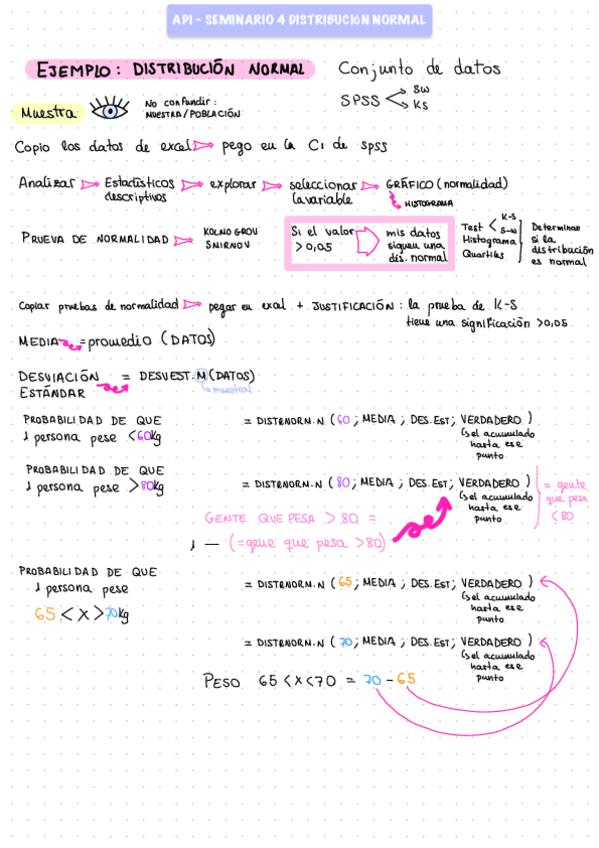 API - SEMINARIO 4 DISTRIBUCIÓN NORMAL
EJEMPLO: DISTRIBUCIÓN NORMAL Conjunto de datos
SPSS SW
KS
Muestra No confundir:
MUESTRA/POBLACIÓN
Copio los datos de excal pego en la C1 de spss
Analizar Estadísticos descriptivos explorar seleccionar la variable GRÁFICO (normalidad)
HISTOGRAMA
PRUEBA DE NORMALIDAD KOLMOGROV
SMIRNOV
Si el valor
> 0,05
mis datos
siguen una
dis. normal
Test K-S
S-W
Histograma
Quartiles
Determinan
si la
distribución
es normal
Copiar pruebas de normalidad pegar en exal + JUSTIFICACIÓN: la prueba de K-S
tiene una significación >0,05
MEDIA = promedio (DATOS)
DESVIACIÓN = DESVEST.M(DATOS)
ESTÁNDAR muestral
PROBABILIDAD DE QUE = DISTR.NORM.N (60; MEDIA; DES.EST; VERDADERO)
1 persona pese <60kg
(sel acumulado
hasta ese
punto
PROBABILIDAD DE QUE
1 persona pese >80kg = DISTR.NORM.N (80; MEDIA; DES.EST; VERDADERO)
(sel acumulado
hasta ese
punto
= gente
que pesa
<80
GENTE QUE PESA > 80 =
1 — (=gene que pesa >80)
PROBABILIDAD DE QUE
1 persona pese = DISTR.NORM.N (65; MEDIA; DES.EST; VERDADERO)
(sel acumulado
hasta ese
punto
65 < X > 70kg
= DISTR.NORM.N (70; MEDIA; DES.EST; VERDADERO)
(sel acumulado
hasta ese
punto
PESO 65 < X < 70 = 70 - 65